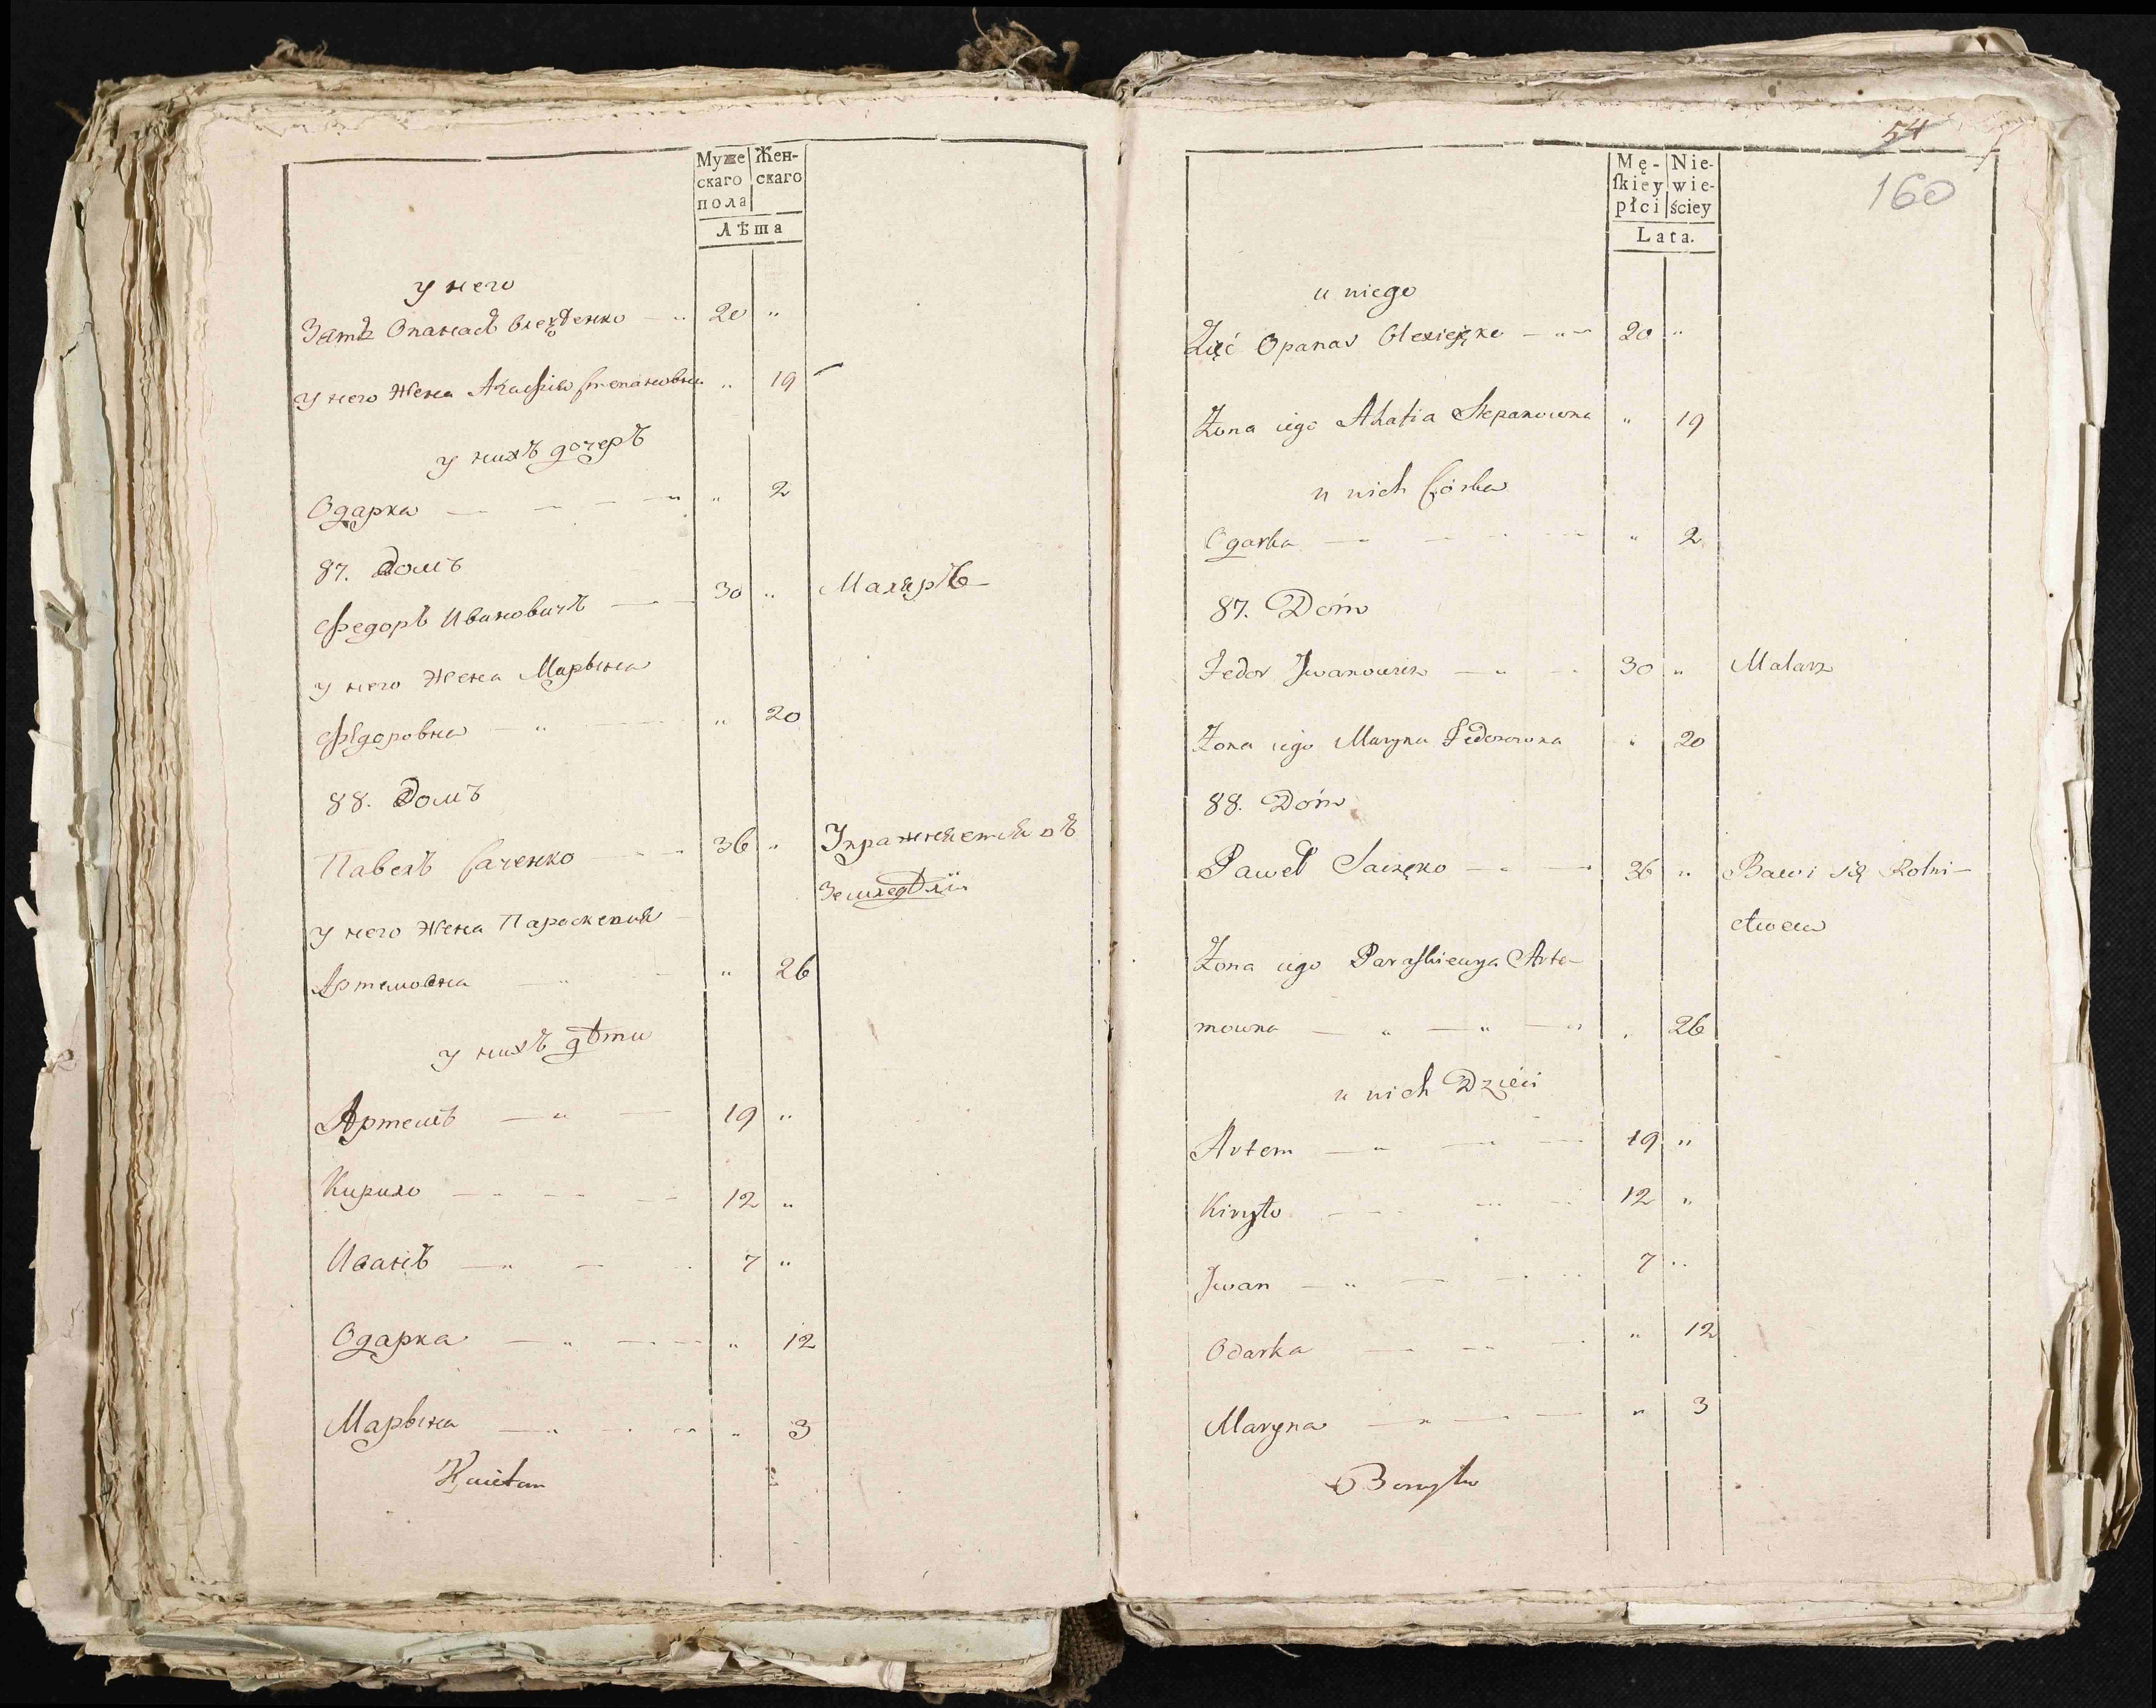 Муже Жен-
скаго скаго
пола
Лѣта
у него
Зять Опанасъ Олехѣенко 20 "
У него Жена Агафія Степановна " 19
у нихъ дочеръ
Одарка " 2
87. Домъ
Федоръ Ивановичъ 30 " Маляръ
у него Жена Марына
Федоровна " 20
88. Домъ
Павелъ Саченко 36 " Упражняется въ
Земледѣліи
у него Жена Параскевия
Артемовна " 26
у нихъ дѣти
Артемъ 19 "
Кирило 12 "
Иванъ 7 "
Одарка " 12
Марына " 3
54
160
Mę- Nie-
ſkiey wie-
płci ściey
Lata.
u niego
Zięć Opanas 20 "
Zona iego Ahafia Stepanowna " 19
u nich Córka
Odarka " 2
87. Dóm
Fedor Iwanowicz 30 " Malarz
Zona iego Maryna Fedorowna " 20
88. Dóm
Paweł Saczęko 36 " Bawi się Rolni-
ctwem
Zona iego Paraſkiewya Arte-
mowna " 26
u nich Dzieci
Artem 19 "
Kiryło 12 "
Iwan 7 "
Odarka " 12
Maryna " 3